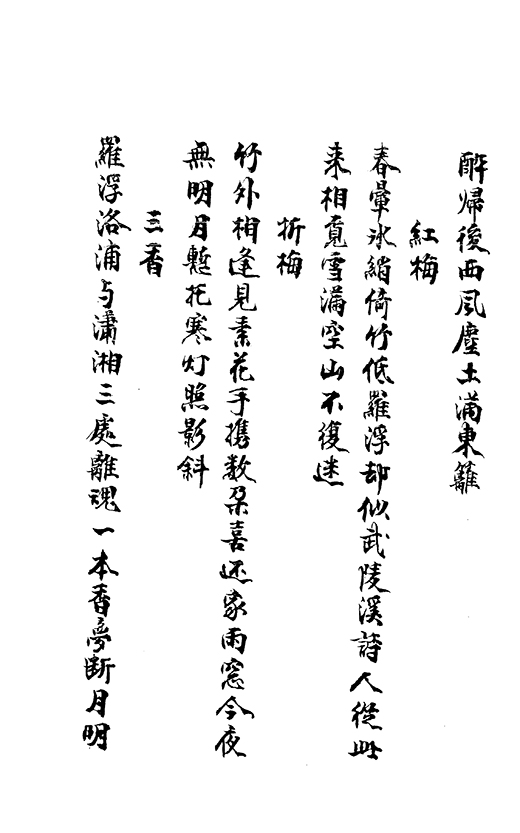 醉歸後西風塵土滿東籬
紅梅
春暈冰綃倚竹低羅浮却似武陵溪詩人從此
来相覓雪滿空山不復迷
折梅
竹外相逢見素花手携数朶喜还家雨窓今夜
無明月暫托寒灯照影斜
三香
羅浮洛浦与瀟湘三處離魂一本香夢断月明